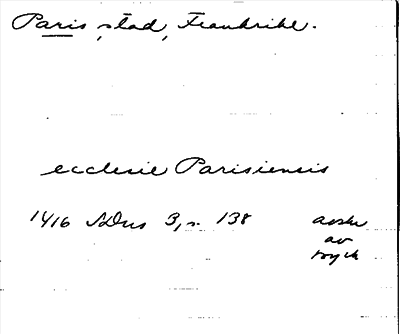 Paris, stad, Frankrike.
ecclesie Parisiensis
1416 SDns 3, s. 138 avskr
av
tryck